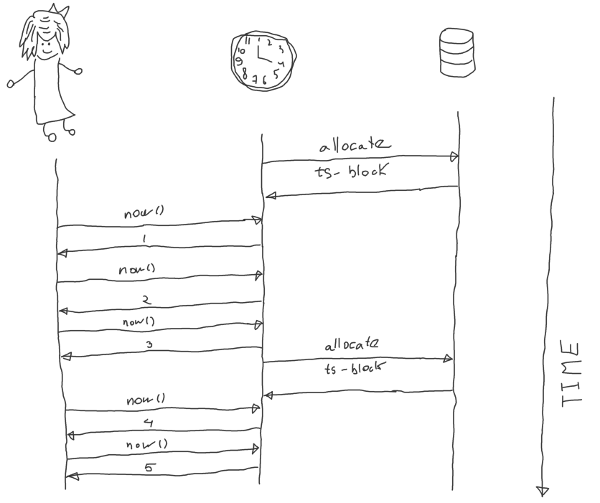 11 1 2
10 3
9 4
8 7 6 5
allocate
ts-block
now()
1
now()
2
now()
3
allocate
ts-block
now()
4
now()
5
TIME